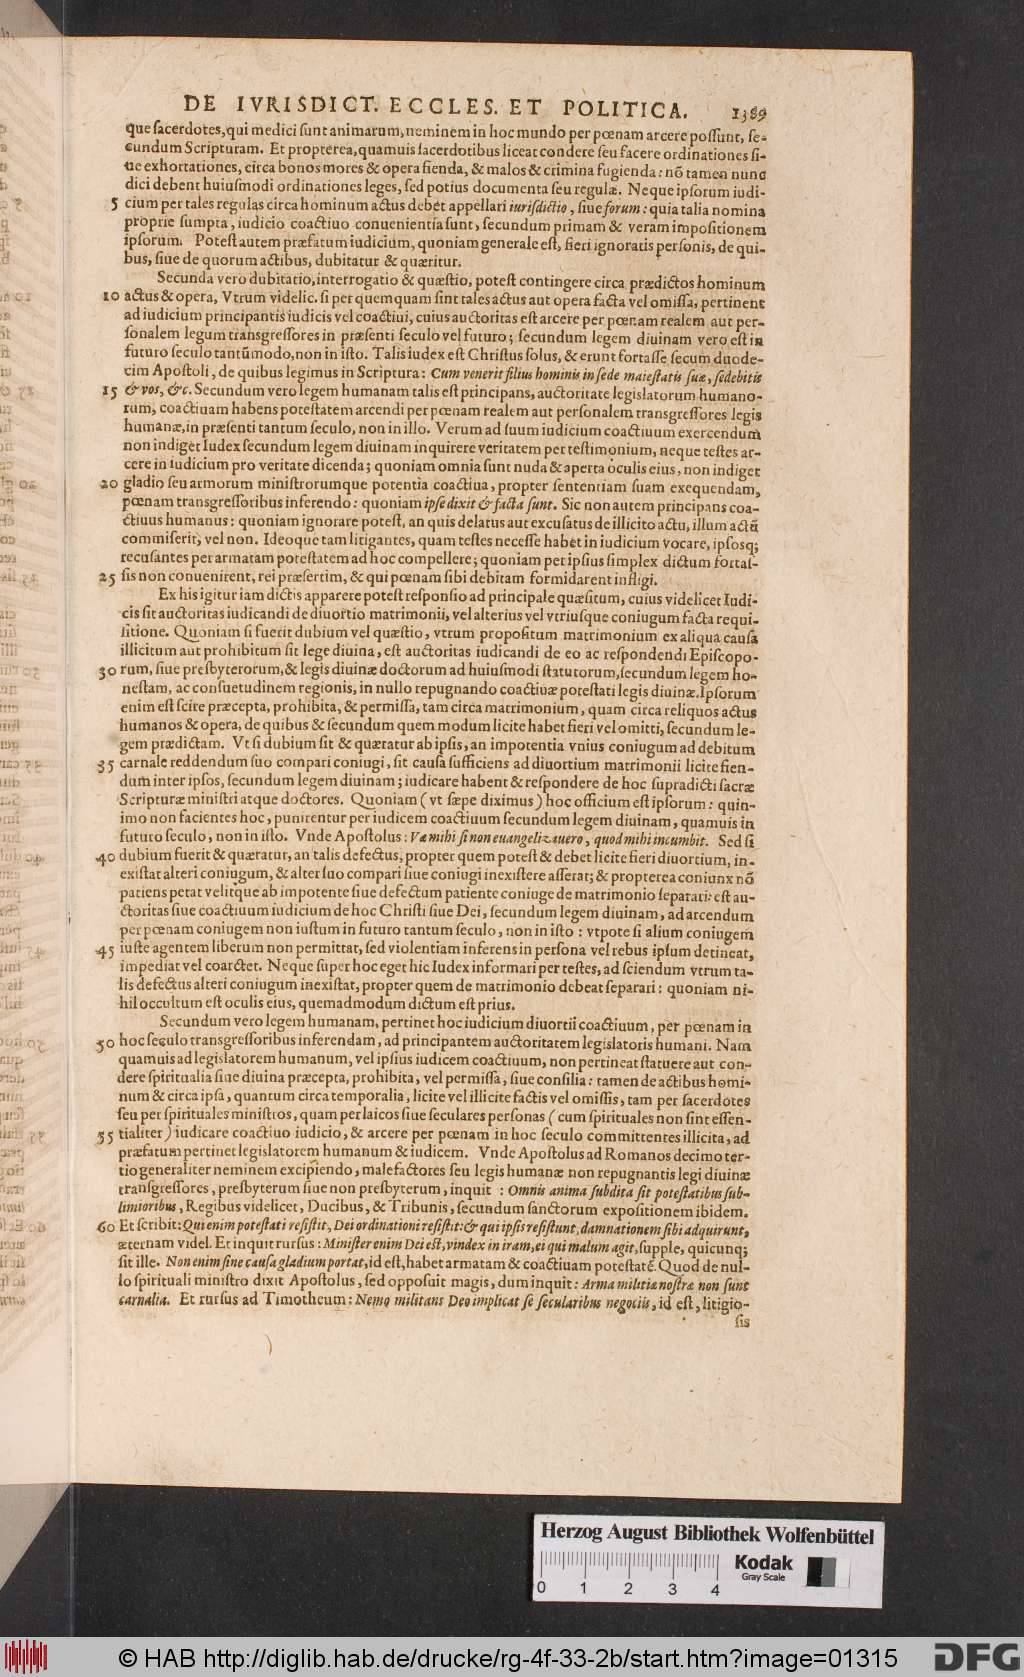 DE IVRISDICT. ECCLES. ET POLITICA. 1389
que sacerdotes, qui medici sunt animarum, neminem in hoc mundo per pœnam arcere possunt, se-
cundum Scripturam. Et propterea, quamuis sacerdotibus liceat condere seu facere ordinationes si-
ue exhortationes, circa bonos mores & opera fienda, & malos & crimina fugienda: nõ tamen nunc
dici debent huiusmodi ordinationes leges, sed potius documenta seu regulæ. Neque ipsorum iudi-
5 cium per tales regulas circa hominum actus debet appellari iurisdictio, siue forum: quia talia nomina
proprie sumpta, iudicio coactiuo conuenientia sunt, secundum primam & veram impositionem
ipsorum. Potest autem præfatum iudicium, quoniam generale est, fieri ignoratis personis, de qui-
bus, siue de quorum actibus, dubitatur & quæritur.
Secunda vero dubitatio, interrogatio & quæstio, potest contingere circa prædictos hominum
10 actus & opera, Vtrum videlic. si per quemquam sint tales actus aut opera facta vel omissa, pertinent
ad iudicium principantis iudicis vel coactiui, cuius auctoritas est arcere per pœnam realem aut per-
sonalem legum transgressores in præsenti seculo vel futuro; secundum legem diuinam vero est in
futuro seculo tantũmodo, non in isto. Talis iudex est Christus solus, & erunt fortasse secum duode-
cim Apostoli, de quibus legimus in Scriptura: Cum venerit filius hominis in sede maiestatis suæ, sedebitis
15 & vos, &c. Secundum vero legem humanam talis est principans, auctoritate legislatorum humano-
rum, coactiuam habens potestatem arcendi per pœnam realem aut personalem transgressores legis
humanæ, in præsenti tantum seculo, non in illo. Verum ad suum iudicium coactiuum exercendum
non indiget Iudex secundum legem diuinam inquirere veritatem per testimonium, neque testes ar-
cere in iudicium pro veritate dicenda; quoniam omnia sunt nuda & aperta oculis eius, non indiget
20 gladio seu armorum ministrorumque potentia coactiua, propter sententiam suam exequendam,
pœnam transgressoribus inferendo: quoniam ipse dixit & facta sunt. Sic non autem principans coa-
ctiuus humanus: quoniam ignorare potest, an quis delatus aut excusatus de illicito actu, illum actũ
commiserit, vel non. Ideoque tam litigantes, quam testes necesse habet in iudicium vocare, ipsosq;
recusantes per armatam potestatem ad hoc compellere; quoniam per ipsius simplex dictum fortas-
25 sis non conuenirent, rei præsertim, & qui pœnam sibi debitam formidarent infligi.
Ex his igitur iam dictis apparere potest responsio ad principale quæsitum, cuius videlicet Iudi-
cis sit auctoritas iudicandi de diuortio matrimonii, vel alterius vel vtriusque coniugum facta requi-
sitione. Quoniam si fuerit dubium vel quæstio, vtrum propositum matrimonium ex aliqua causa
illicitum aut prohibitum sit lege diuina, est auctoritas iudicandi de eo ac respondendi Episcopo-
30 rum, siue presbyterorum, & legis diuinæ doctorum ad huiusmodi statutorum, secundum legem ho-
nestam, ac consuetudinem regionis, in nullo repugnando coactiuæ potestati legis diuinæ. Ipsorum
enim est scire præcepta, prohibita, & permissa, tam circa matrimonium, quam circa reliquos actus
humanos & opera, de quibus & secundum quem modum licite habet fieri vel omitti, secundum le-
gem prædictam. Vt si dubium sit & quæratur ab ipsis, an impotentia vnius coniugum ad debitum
35 carnale reddendum suo compari coniugi, sit causa sufficiens ad diuortium matrimonii licite fien-
dum inter ipsos, secundum legem diuinam; iudicare habent & respondere de hoc supradicti sacræ
Scripturæ ministri atque doctores. Quoniam (vt sæpe diximus) hoc officium est ipsorum: quin-
imo non facientes hoc, punirentur per iudicem coactiuum secundum legem diuinam, quamuis in
futuro seculo, non in isto. Vnde Apostolus: Væ mihi si non euangelizauero, quod mihi incumbit. Sed si
40 dubium fuerit & quæratur, an talis defectus, propter quem potest & debet licite fieri diuortium, in-
existat alteri coniugum, & alter suo compari siue coniugi inexistere asserat; & propterea coniunx nõ
patiens petat velitque ab impotente siue defectum patiente coniuge de matrimonio separari: est au-
ctoritas siue coactiuum iudicium de hoc Christi siue Dei, secundum legem diuinam, ad arcendum
per pœnam coniugem non iustum in futuro tantum seculo, non in isto: vtpote si alium coniugem
45 iuste agentem liberum non permittat, sed violentiam inferens in persona vel rebus ipsum detineat,
impediat vel coarctet. Neque super hoc eget hic Iudex informari per testes, ad sciendum vtrum ta-
lis defectus alteri coniugum inexistat, propter quem de matrimonio debeat separari: quoniam ni-
hil occultum est oculis eius, quemadmodum dictum est prius.
Secundum vero legem humanam, pertinet hoc iudicium diuortii coactiuum, per pœnam in
50 hoc seculo transgressoribus inferendam, ad principantem auctoritatem legislatoris humani. Nam
quamuis ad legislatorem humanum, vel ipsius iudicem coactiuum, non pertineat statuere aut con-
dere spiritualia siue diuina præcepta, prohibita, vel permissa, siue consilia: tamen de actibus homi-
num & circa ipsa, quantum circa temporalia, licite vel illicite factis vel omissis, tam per sacerdotes
seu per spirituales ministros, quam per laicos siue seculares personas (cum spirituales non sint essen-
55 tialiter) iudicare coactiuo iudicio, & arcere per pœnam in hoc seculo committentes illicita, ad
præfatum pertinet legislatorem humanum & iudicem. Vnde Apostolus ad Romanos decimoter-
tio generaliter neminem excipiendo, malefactores seu legis humanæ non repugnantis legi diuinæ
transgressores, presbyterum siue non presbyterum, inquit: Omnis anima subdita sit potestatibus sub-
limioribus, Regibus videlicet, Ducibus, & Tribunis, secundum sanctorum expositionem ibidem.
60 Et scribit: Qui enim potestati resistit, Dei ordinationi resistit: & qui ipsis resistunt, damnationem sibi adquirunt,
æternam videl. Et inquit rursus: Minister enim Dei est, vindex in iram, ei qui malum agit, supple, quicunq;
sit ille. Non enim sine causa gladium portat, id est, habet armatam & coactiuam potestatẽ. Quod de nul-
lo spirituali ministro dixit Apostolus, sed opposuit magis, dum inquit: Arma militiæ nostræ non sunt
carnalia. Et rursus ad Timotheum: Nemo militans Deo implicat se secularibus negociis, id est, litigio-
sis
Herzog August Bibliothek Wolfenbüttel
Kodak
Gray Scale
0 1 2 3 4
© HAB http://diglib.hab.de/drucke/rg-4f-33-2b/start.htm?image=01315
DFG